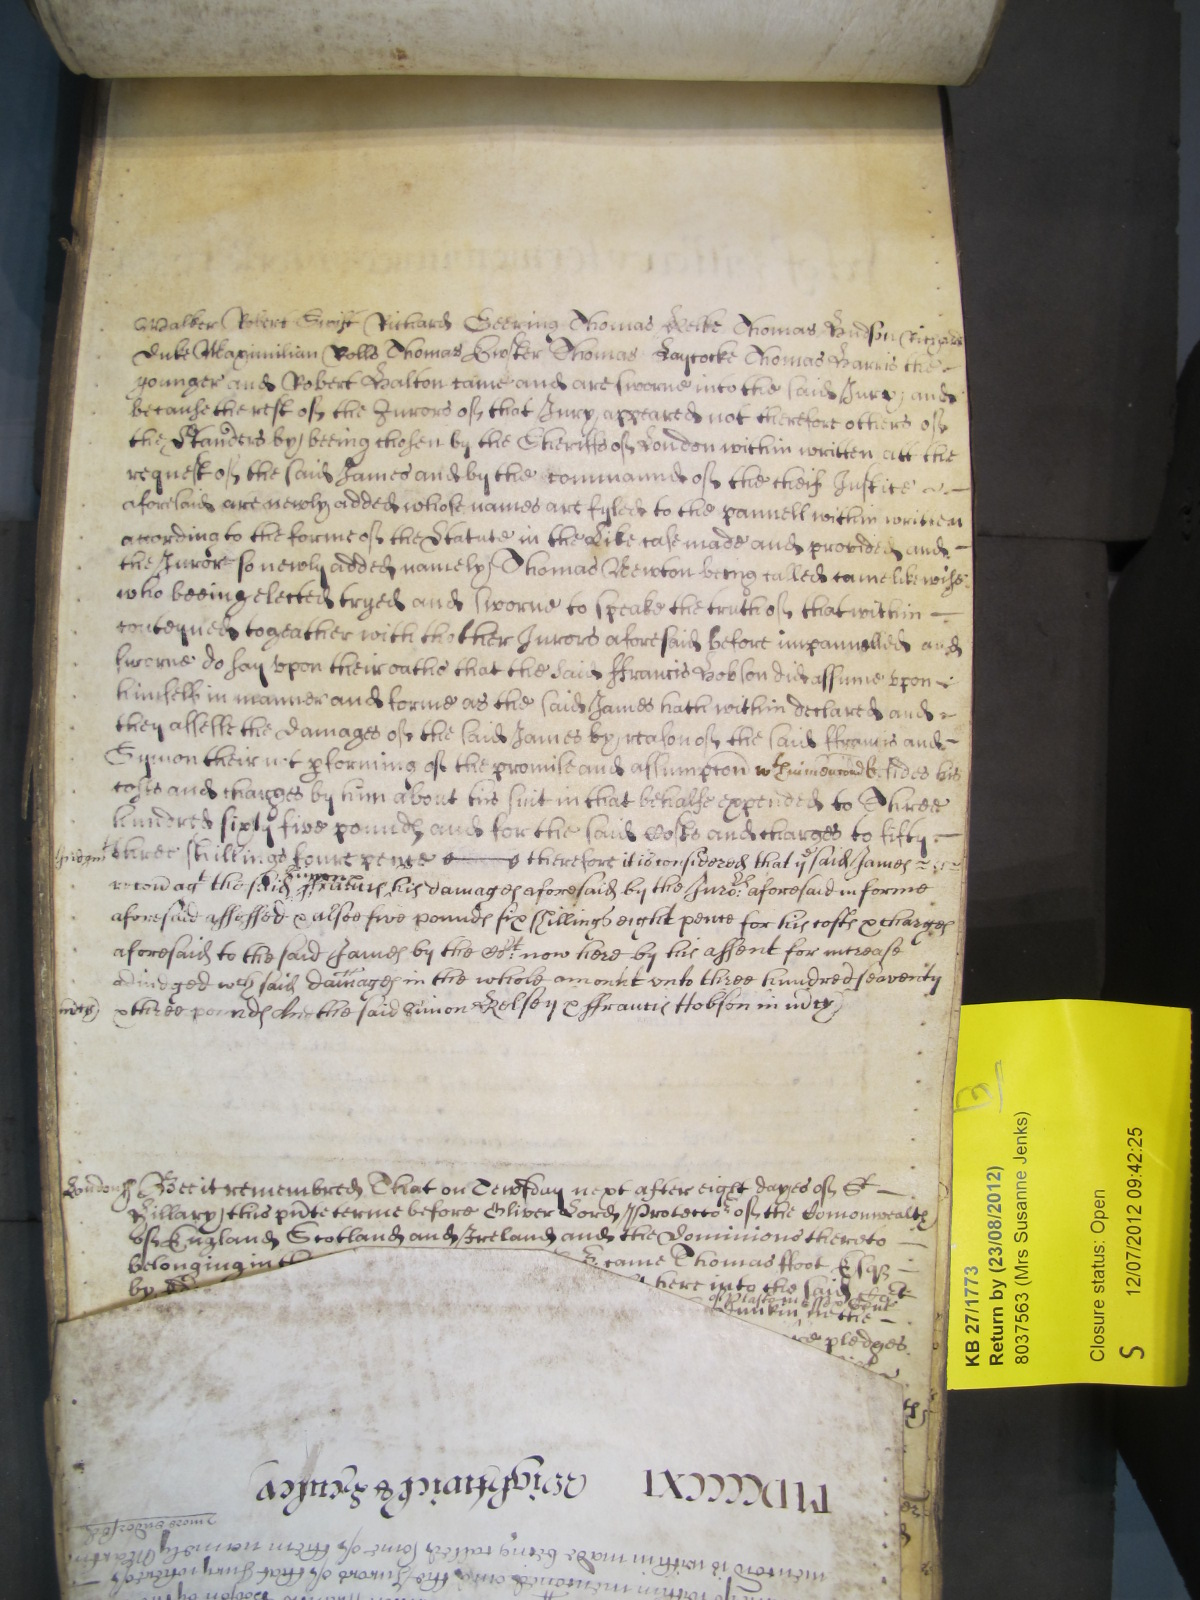 Walker Robert Swift Richard Geering Thomas Thomas Hudson Richard
Duke Maximilian Rolls Thomas Thomas Laycocke Thomas Harris the
younger and Robert Halton came and are sworne into the said Jury and
because the rest of the Jurors of that Jury appeared not therefore others of
the Standers by beeing chosen by the Sheriffs of London within written att the
request of the said James and by the commaund of the cheif Justice
aforesaid are newly added whose names are fyled to the pannell within written
according to the forme of the Statute in the Like case made and provided and
the Juror so newly added namely Thomas Newton being called came likewise
who beeing elected tryed and sworne to speake the truth of that within
conteyned togeather with the other Jurors aforesaid before impannelled and
sworne do say vpon their oaths that the said ffrancis Hobson did assume vpon
himself in manner and forme as the said James hath within declared and
they assesse the damages of the said James by reason of the said ffrancis and
Symon their not pforming of the promise and assumpcon besides his
costs and charges by him about his suit in that behalfe expended to Three
hundred sixty five pounds and for the said Costs and charges to fifty
three shillings foure pence therefore it is considered that ye said James
recou agt the said Simon & ffrancis his damages aforesaid by the Juro:rs aforesaid in forme
aforesaid assessed & alsoe five pounds six shillings eight pence for his costs & charges
aforesaid to the said James by the Co:rt now here by his assent for increase
adiudged wch said damages in the whole amount vnto three hundred seaventy
& three pounds And the said Simon Kelsey & ffrancis Hobson in mcy
mcy
London ss Bee it remembred That on Tewsday next after eight dayes of St
Hillary this pnte terme before Oliver Lord Protector of the Comonwealth
of England Scotland and Ireland and the Dominions thereto
belonging in th came Thomas ffoot Esqr
by here into the said
in the
pledges
MDCCCCXI Wightwick & Yeuley
mencoed is within made being called some of them namely Martin
within mentioned came the Jurors of that Jury whereof
KB 27/1773
Return by (23/08/2012)
8037563 (Mrs Susanne Jenks)
Closure status: Open
S 12/07/2012 09:42:25